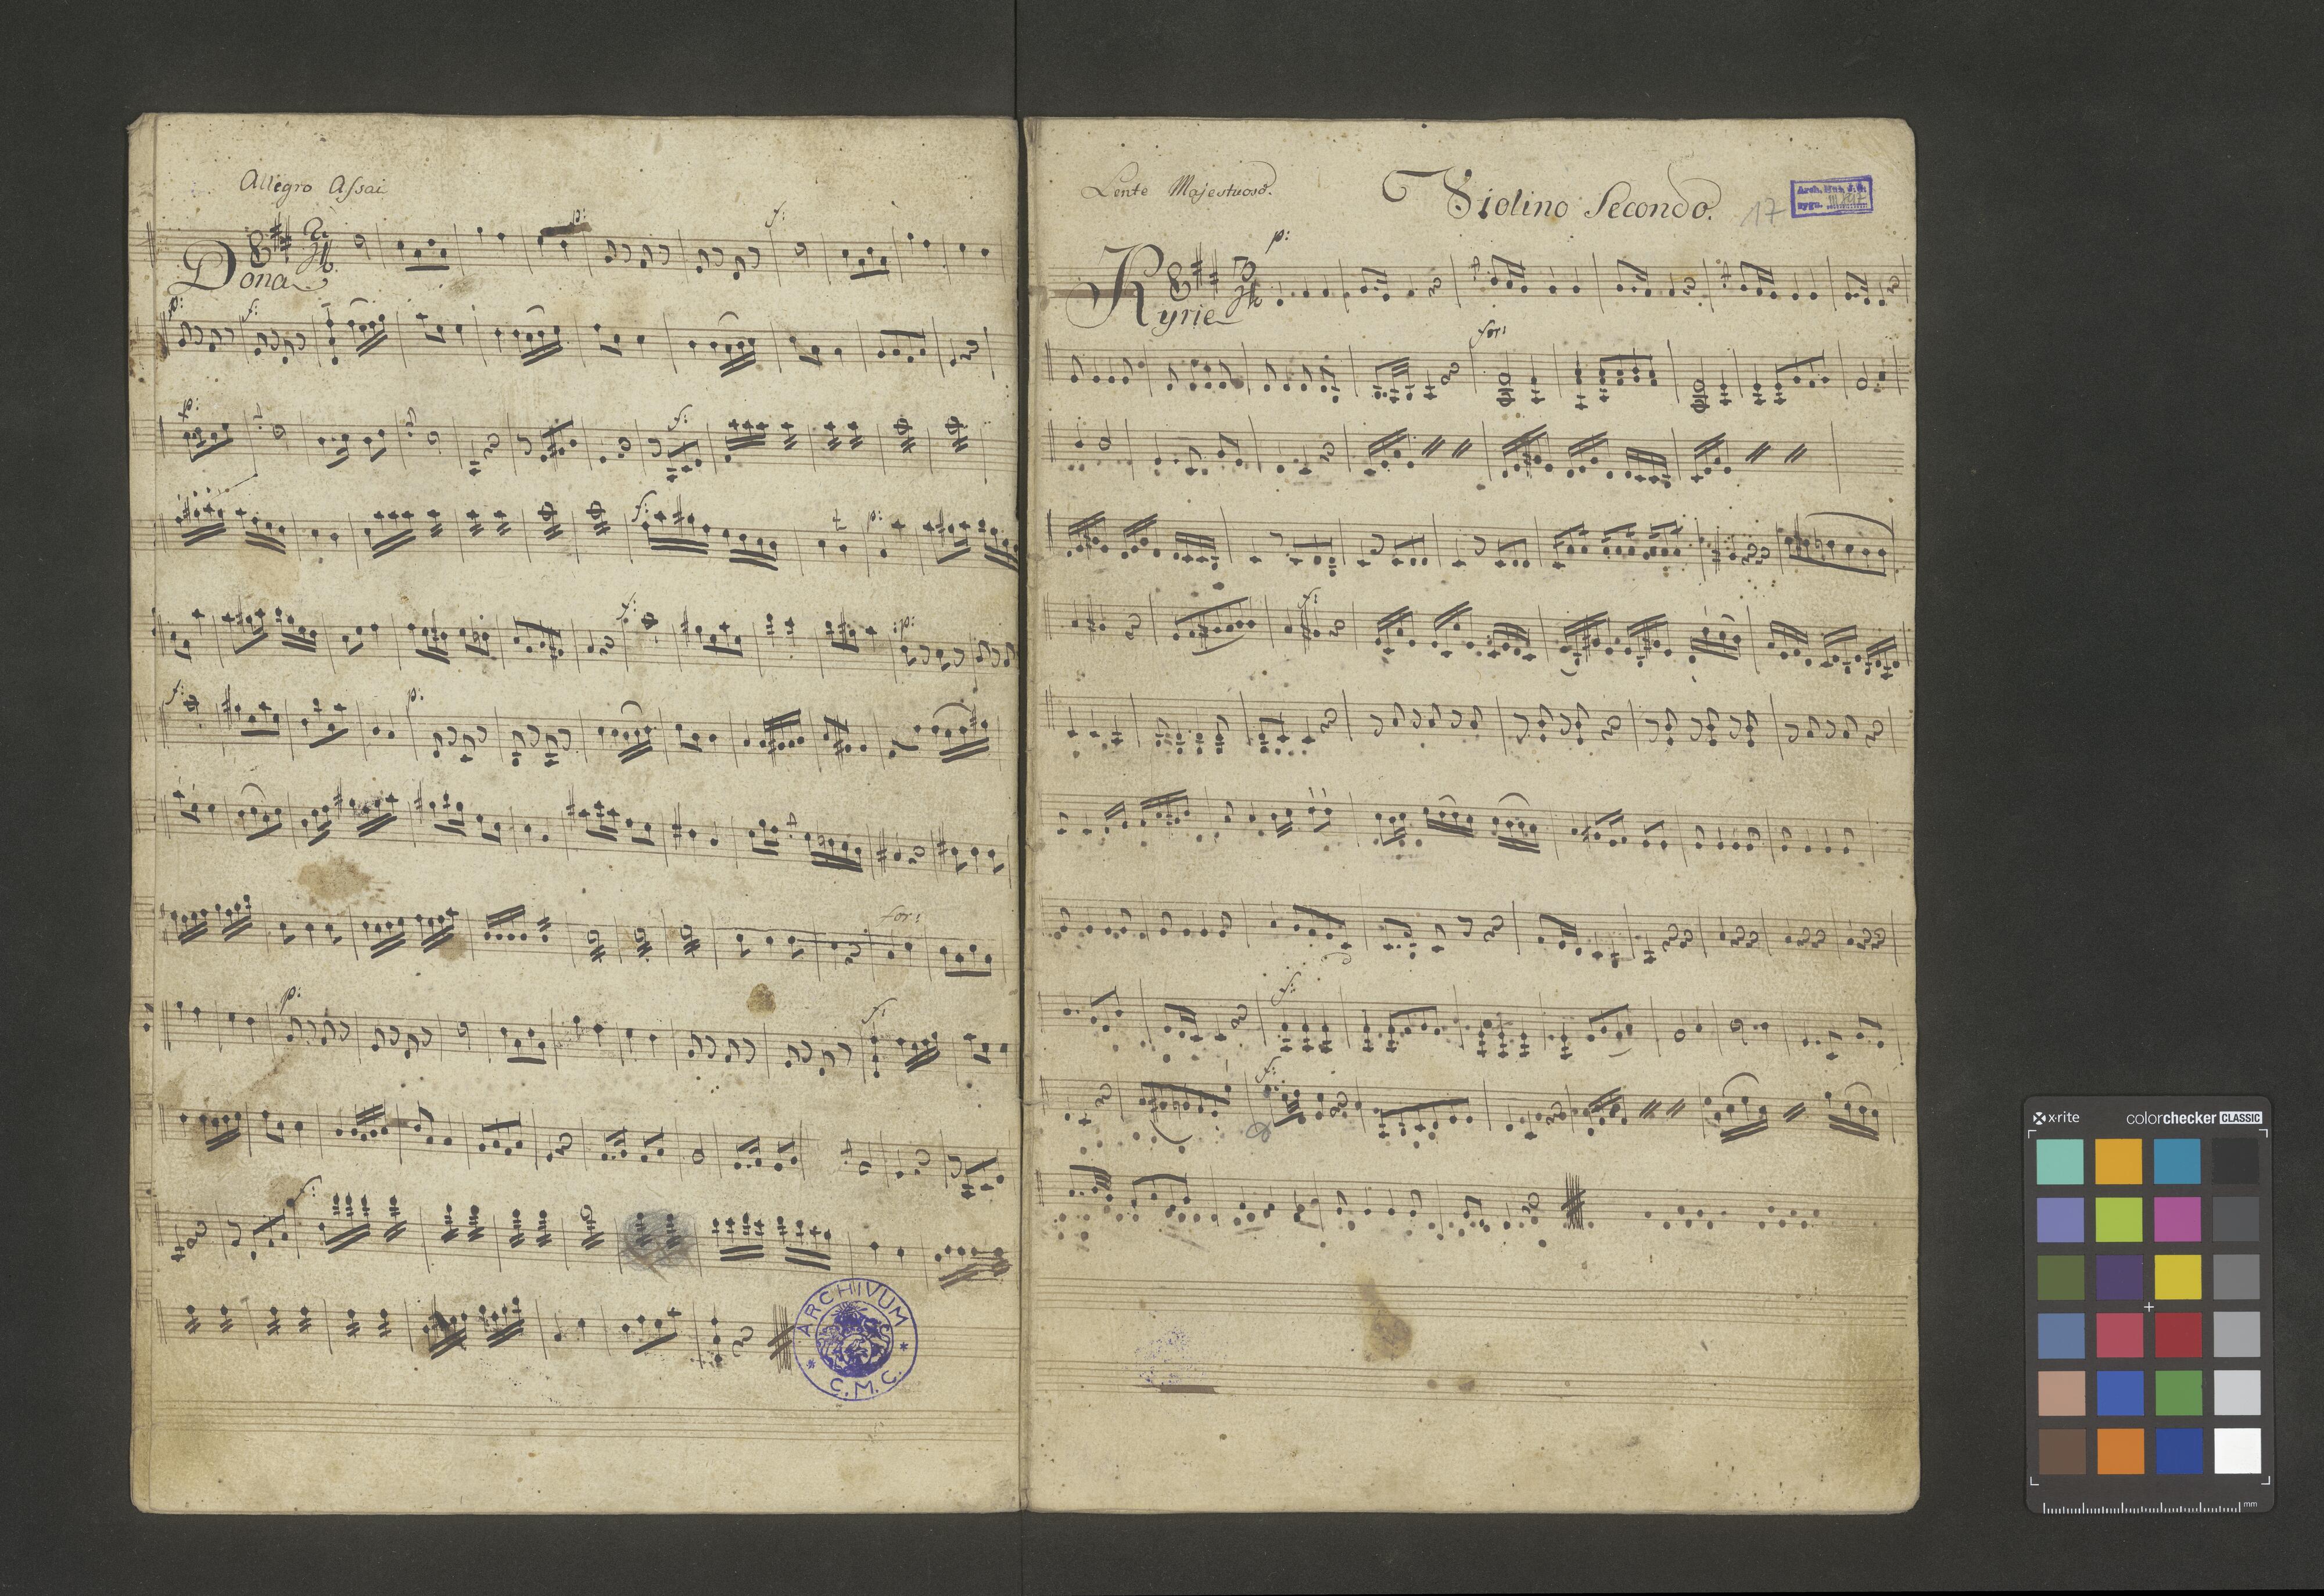 Allegro Assai
p:
f:
Dona
p:
f:
p:
f:
f:
p:
f:
p:
f:
p:
for:
p:
f:
f:
ARCHIVUM
C.M.C.
Lente Majestuoso.
Violino Secondo.
17
Arch. Muz. J.G.
sygn. III
p:
Kyrie
for:
f:
f:
f:
x-rite
colorchecker CLASSIC
mm